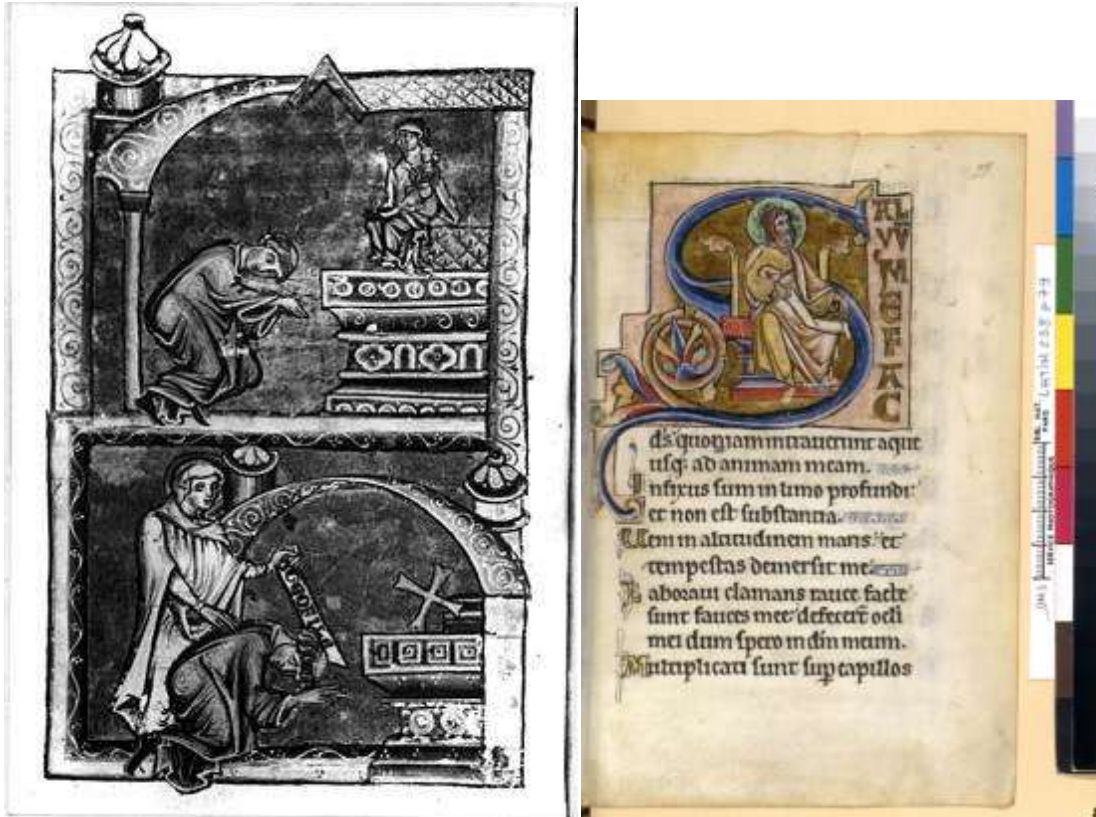 SAL
VV
M
E
F
AC
ds quoniam intraverunt aque
usq; ad animam meam.
Infixus sum in limo profundi
et non est substantia.
Veni in altitudinem maris. et
tempestas demersit me.
Laboravi clamans rauce facte
sunt fauces mee defecert ocli
mei dum spero in dm meum.
Multiplicati sunt sup capillos
SERVICE PHOTOGRAPHIQUE